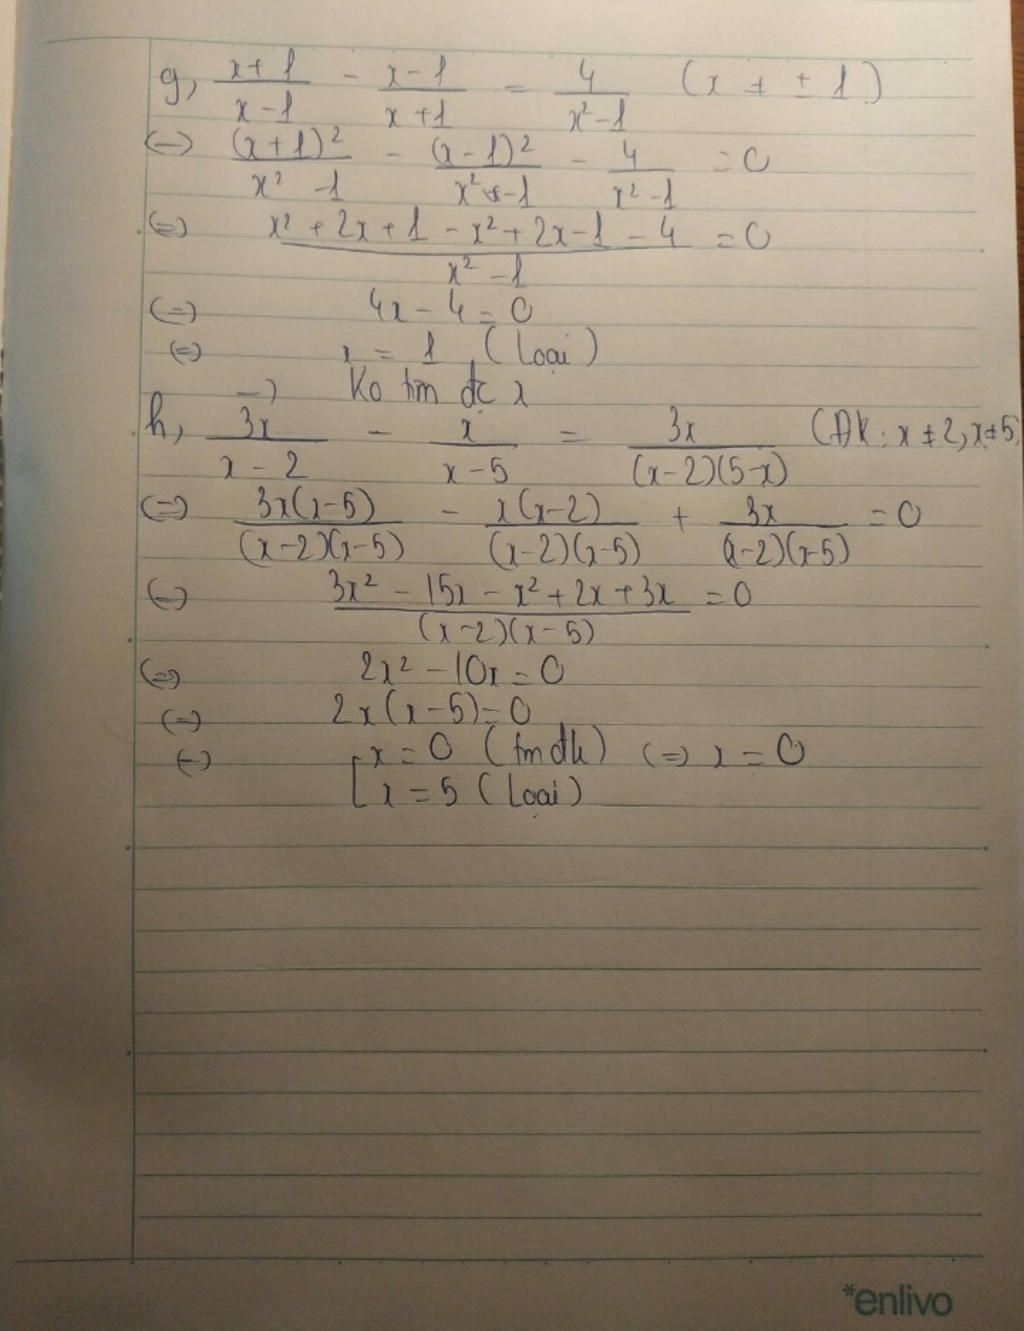 g, (x+1)/(x-1) - (x-1)/(x+1) = 4/(x²-1) (x ≠ ± 1)
(=) (x+1)²/(x²-1) - (x-1)²/(x²-1) - 4/(x²-1) = 0
(=) (x² + 2x + 1 - x² + 2x - 1 - 4)/(x²-1) = 0
(=) 4x - 4 = 0
(=) x = 1 (loại)
=) Ko tìm đc x
h, 3x/(x-2) - x/(x-5) = 3x/((x-2)(5-x)) (ĐK: x ≠ 2, x ≠ 5)
(=) 3x(x-5)/((x-2)(x-5)) - x(x-2)/((x-2)(x-5)) + 3x/((x-2)(x-5)) = 0
(=) (3x² - 15x - x² + 2x + 3x)/((x-2)(x-5)) = 0
(=) 2x² - 10x = 0
(=) 2x(x-5) = 0
(=) [x = 0 (tmđk) (=) x = 0
[x = 5 (loại)
*enlivo